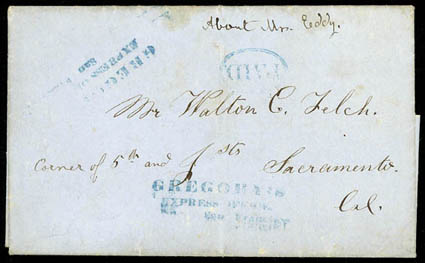 About Mrs. Eddy.
GREGORY'S
EXPRESS
SAN
PAID
Mr Walton C. Felch.
Corner of 5th and J sts Sacramento.
GREGORY'S
EXPRESS OFFICE.
San Francisco
Cal.